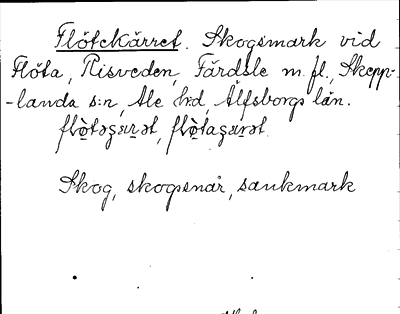 Flötekärret. Skogsmark vid
Flöta, Risveden, Färdsle m. fl., Skepp-
-landa s:n, Ale hd, Älfsborgs län.
Skog, skogssnår, sankmark